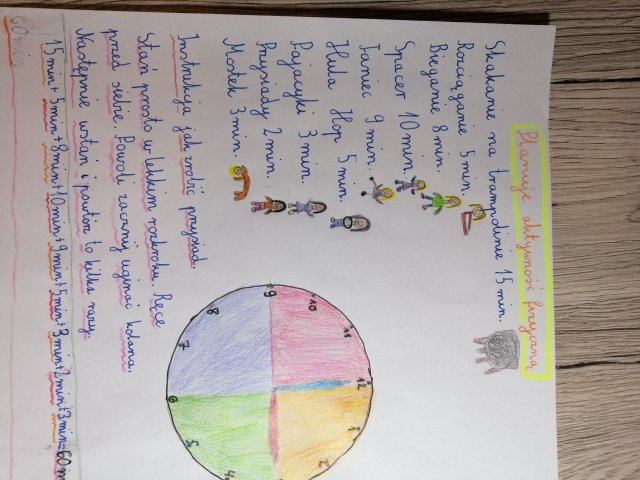 Planuję aktywność fizyczną
Skakanie na trampolinie 15 min.
Rozciąganie 5 min.
Bieganie 8 min.
Spacer 10 min.
Taniec 9 min.
Hula Hop 5 min.
Pajacyki 3 min.
Przysiady 2 min.
Mostek 3 min.
Instrukcja jak zrobić przysiad.
Stań prosto w lekkim rozkroku. Ręce
przed siebie. Powoli zacznij uginać kolana.
Następnie wstań i powtórz to kilka razy.
15 min + 5 min + 8 min + 10 min + 9 min + 5 min + 3 min + 2 min + 3 min = 60 m
12
1
2
4
5
6
7
8
9
10
11